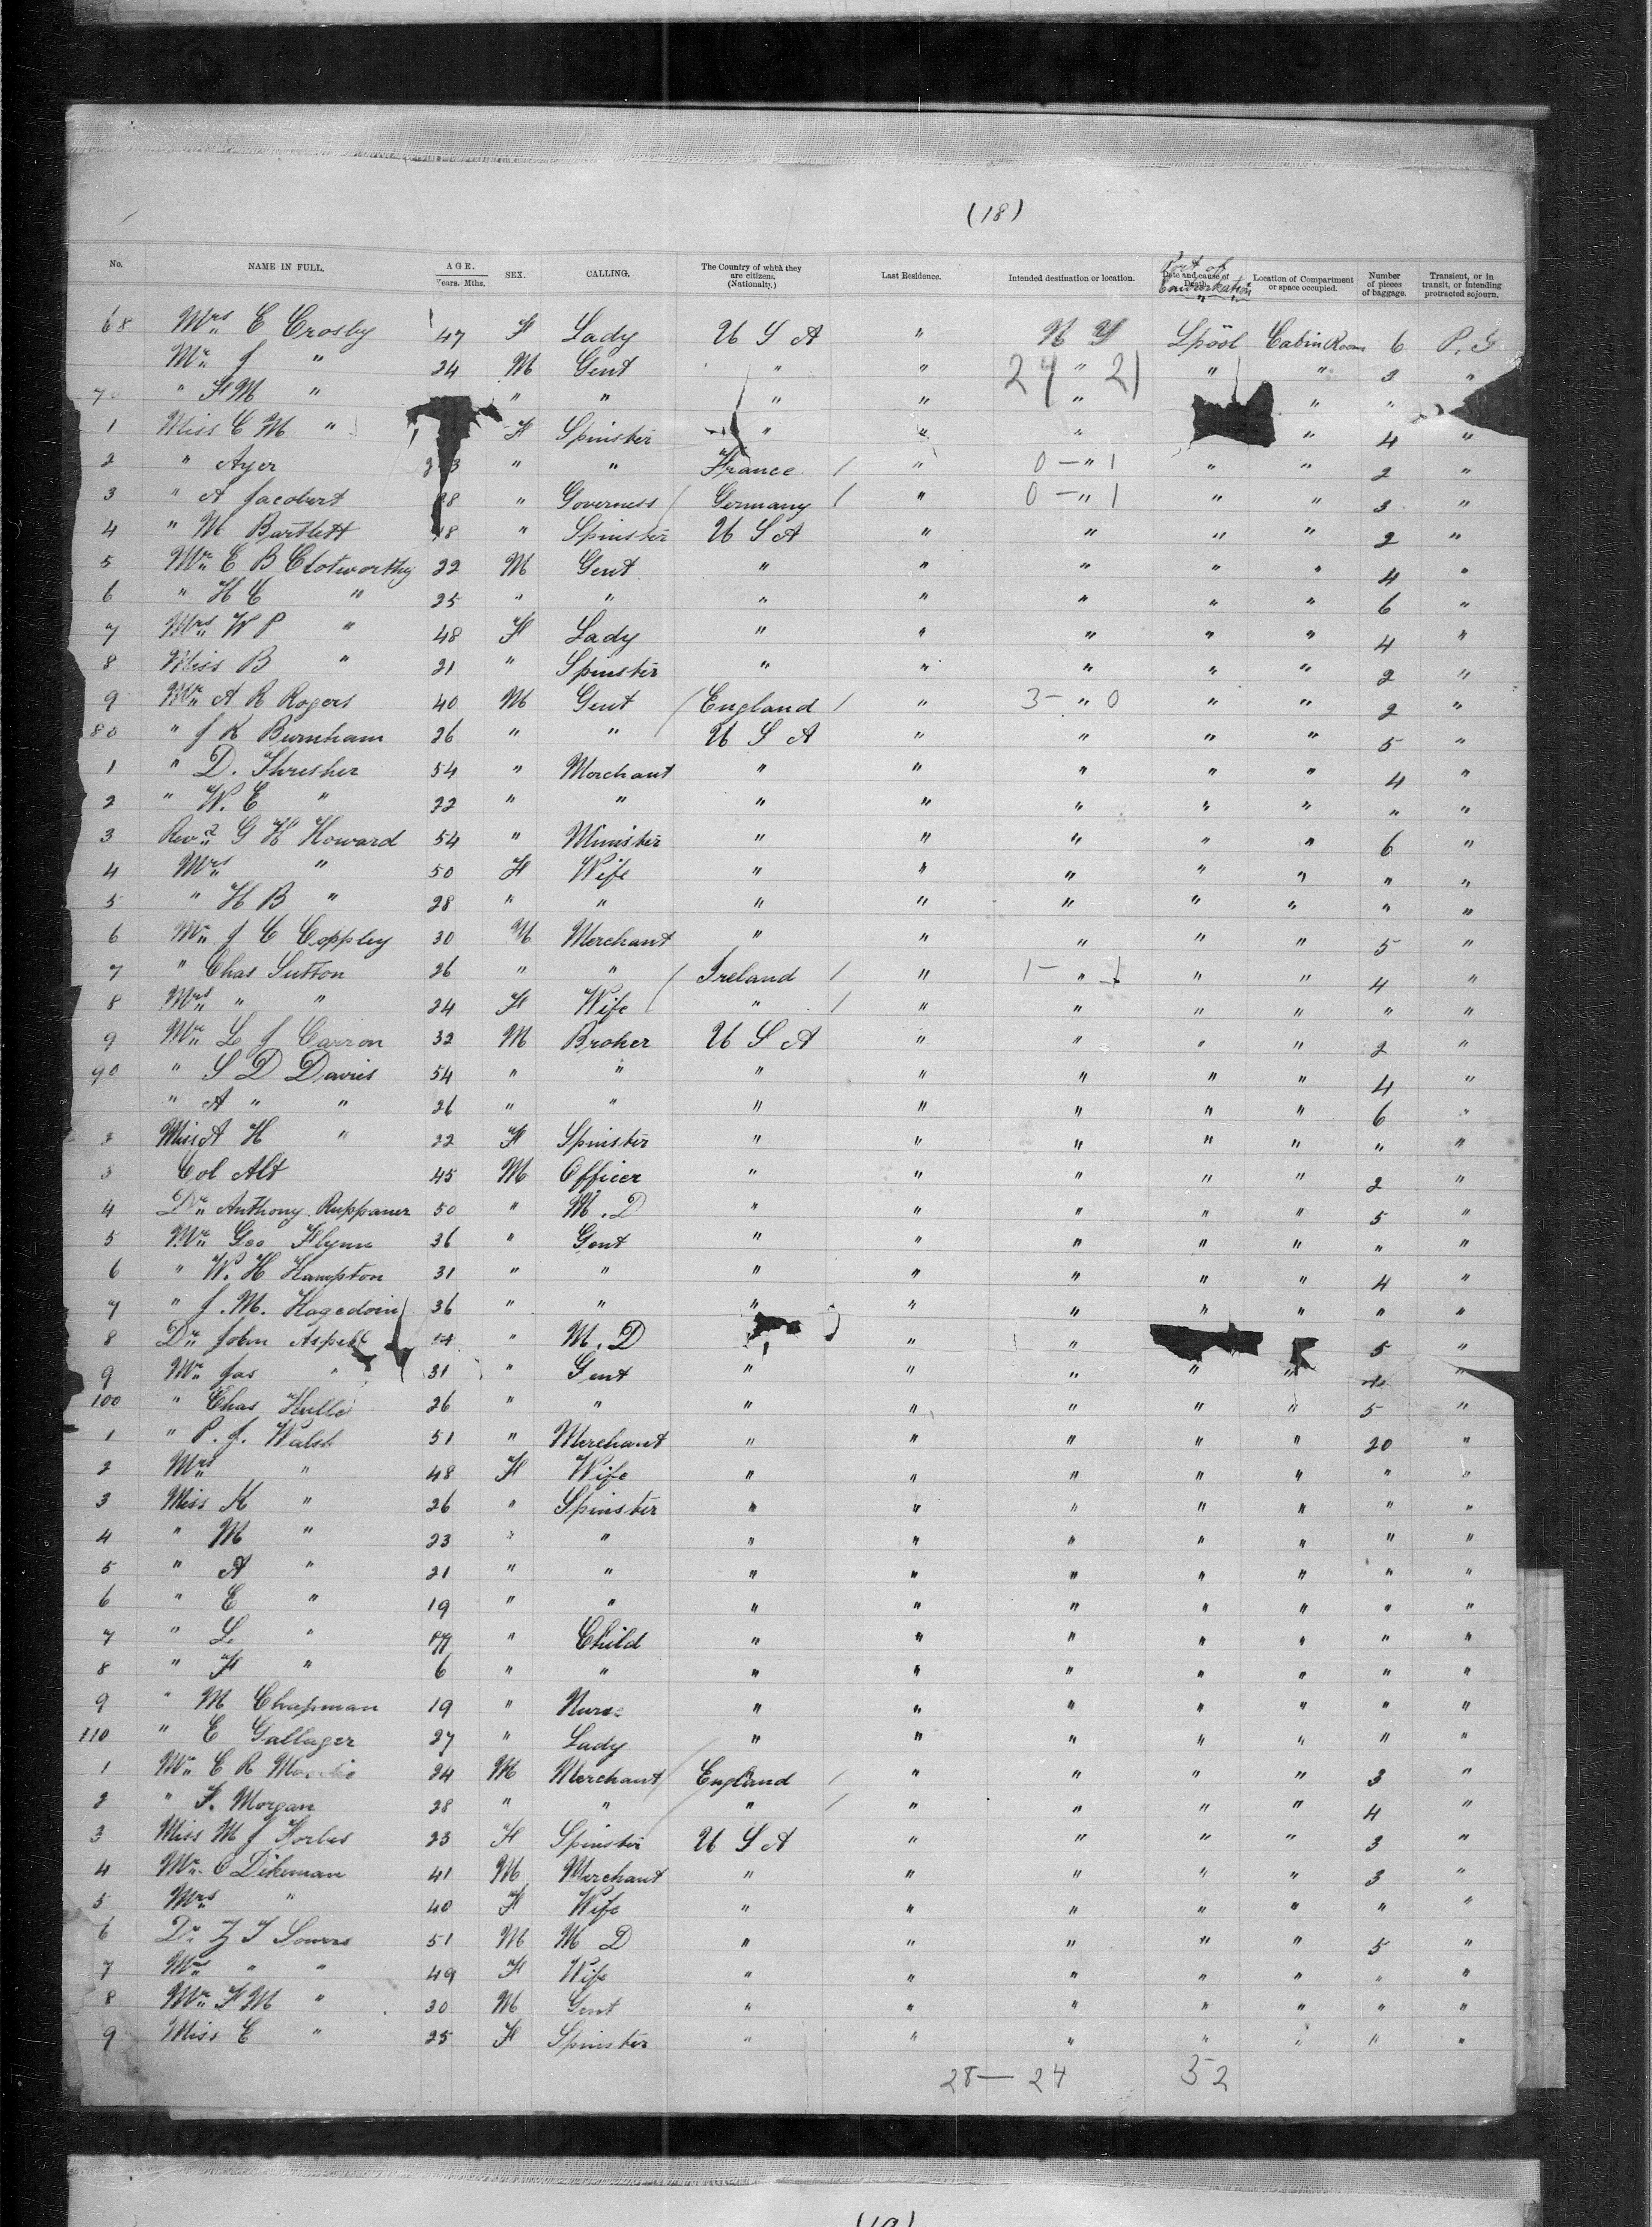 (18)
No. NAME IN FULL. AGE. Years. Mths. SEX. CALLING. The Country of which they are citizens, (Nationality.) Last Residence. Intended destination or location. Date and cause of Death. Port of Embarkation Location of Compartment or space occupied. Number of pieces of baggage. Transient, or in transit, or intending protracted sojourn.
68 Mrs E Crosby 47 F Lady U S A " N Y Lpool Cabin Room 6 P. S
Mr J " 24 M Gent " " 27 " 21 " " 3 "
70 " F M " " " " " " " "
1 Miss C M " F Spinster " " " " 4 "
2 " Ayer 23 " " France / " 0 — " 1 " " 2 "
3 " A Jacobert 28 " Governess / Germany / " 0 — " 1 " " 3 "
4 " M Bartlett 18 " Spinster U S A " " " " 2 "
5 Mr C B Clotworthy 22 M Gent " " " " " 4 "
6 " H C " 25 " " " " " " " 6 "
7 Mrs W P " 48 F Lady " " " " " 4 "
8 Miss B " 21 " Spinster " " " " " 2 "
9 Mr A R Rogers 40 M Gent / England / " 3 - " 0 " " 2 "
80 " J K Burnham 26 " " U S A " " " " 5 "
1 " D. Thresher 54 " Merchant " " " " " 4 "
2 " W. E " 22 " " " " " " " " "
3 Revd G H Howard 54 " Minister " " " " " 6 "
4 Mrs " 50 F Wife " " " " " " "
5 " H B " 28 " " " " " " " " "
6 Mr J C Coppley 30 M Merchant " " " " " 5 "
7 " Chas Sutton 26 " " / Ireland / " 1 - " 1 " " 4 "
8 Mrs " " 24 F Wife " / " " " " " "
9 Mr L J Carron 32 M Broker U S A " " " " 2 "
90 " S D Davies 54 " " " " " " " 4 "
" A " " 26 " " " " " " " 6 "
2 Miss A H " 22 F Spinster " " " " " " "
3 Col Alt 45 M Officer " " " " " 2 "
4 Dr Anthony Ruppaner 50 " M. D " " " " " 5 "
5 Mr Geo Flynn 36 " Gent " " " " " " "
6 " W. H Hampton 31 " " " " " " " 4 "
7 " J. M. Hagedorn 36 " " " " " " " " "
8 Dr John Aspell 54 " M. D " " 5 "
9 Mr Jas " 31 " Gent " " " " " "
100 " Chas Hulle 26 " " " " " " " 5 "
1 " P. J. Walsh 51 " Merchant " " " " " 20 "
2 Mrs " 48 F Wife " " " " " " "
3 Miss K " 26 " Spinster " " " " " " "
4 " M " 23 " " " " " " " " "
5 " A " 21 " " " " " " " " "
6 " E " 19 " " " " " " " " "
7 " L " " Child " " " " " " "
8 " F " 6 " " " " " " " " "
9 " M Chapman 19 " Nurse " " " " " " "
110 " E Gallager 27 " Lady " " " " " " "
1 Mr C R 24 M Merchant / England / " " " " 3 "
2 " F. Morgan 28 " " " / " " " " 4 "
3 Miss M J Forbes 23 F Spinster U S A " " " " 3 "
4 Mr C Dikeman 41 M Merchant " " " " " 3 "
5 Mrs " 40 F Wife " " " " " " "
6 Dr Z T Sowers 51 M M D " " " " " 5 "
7 Mrs " " 49 F Wife " " " " " " "
8 Mr F M " 30 M Gent " " " " " " "
9 Miss E " 25 F Spinster " " " " " " "
28 — 24 52
(19)